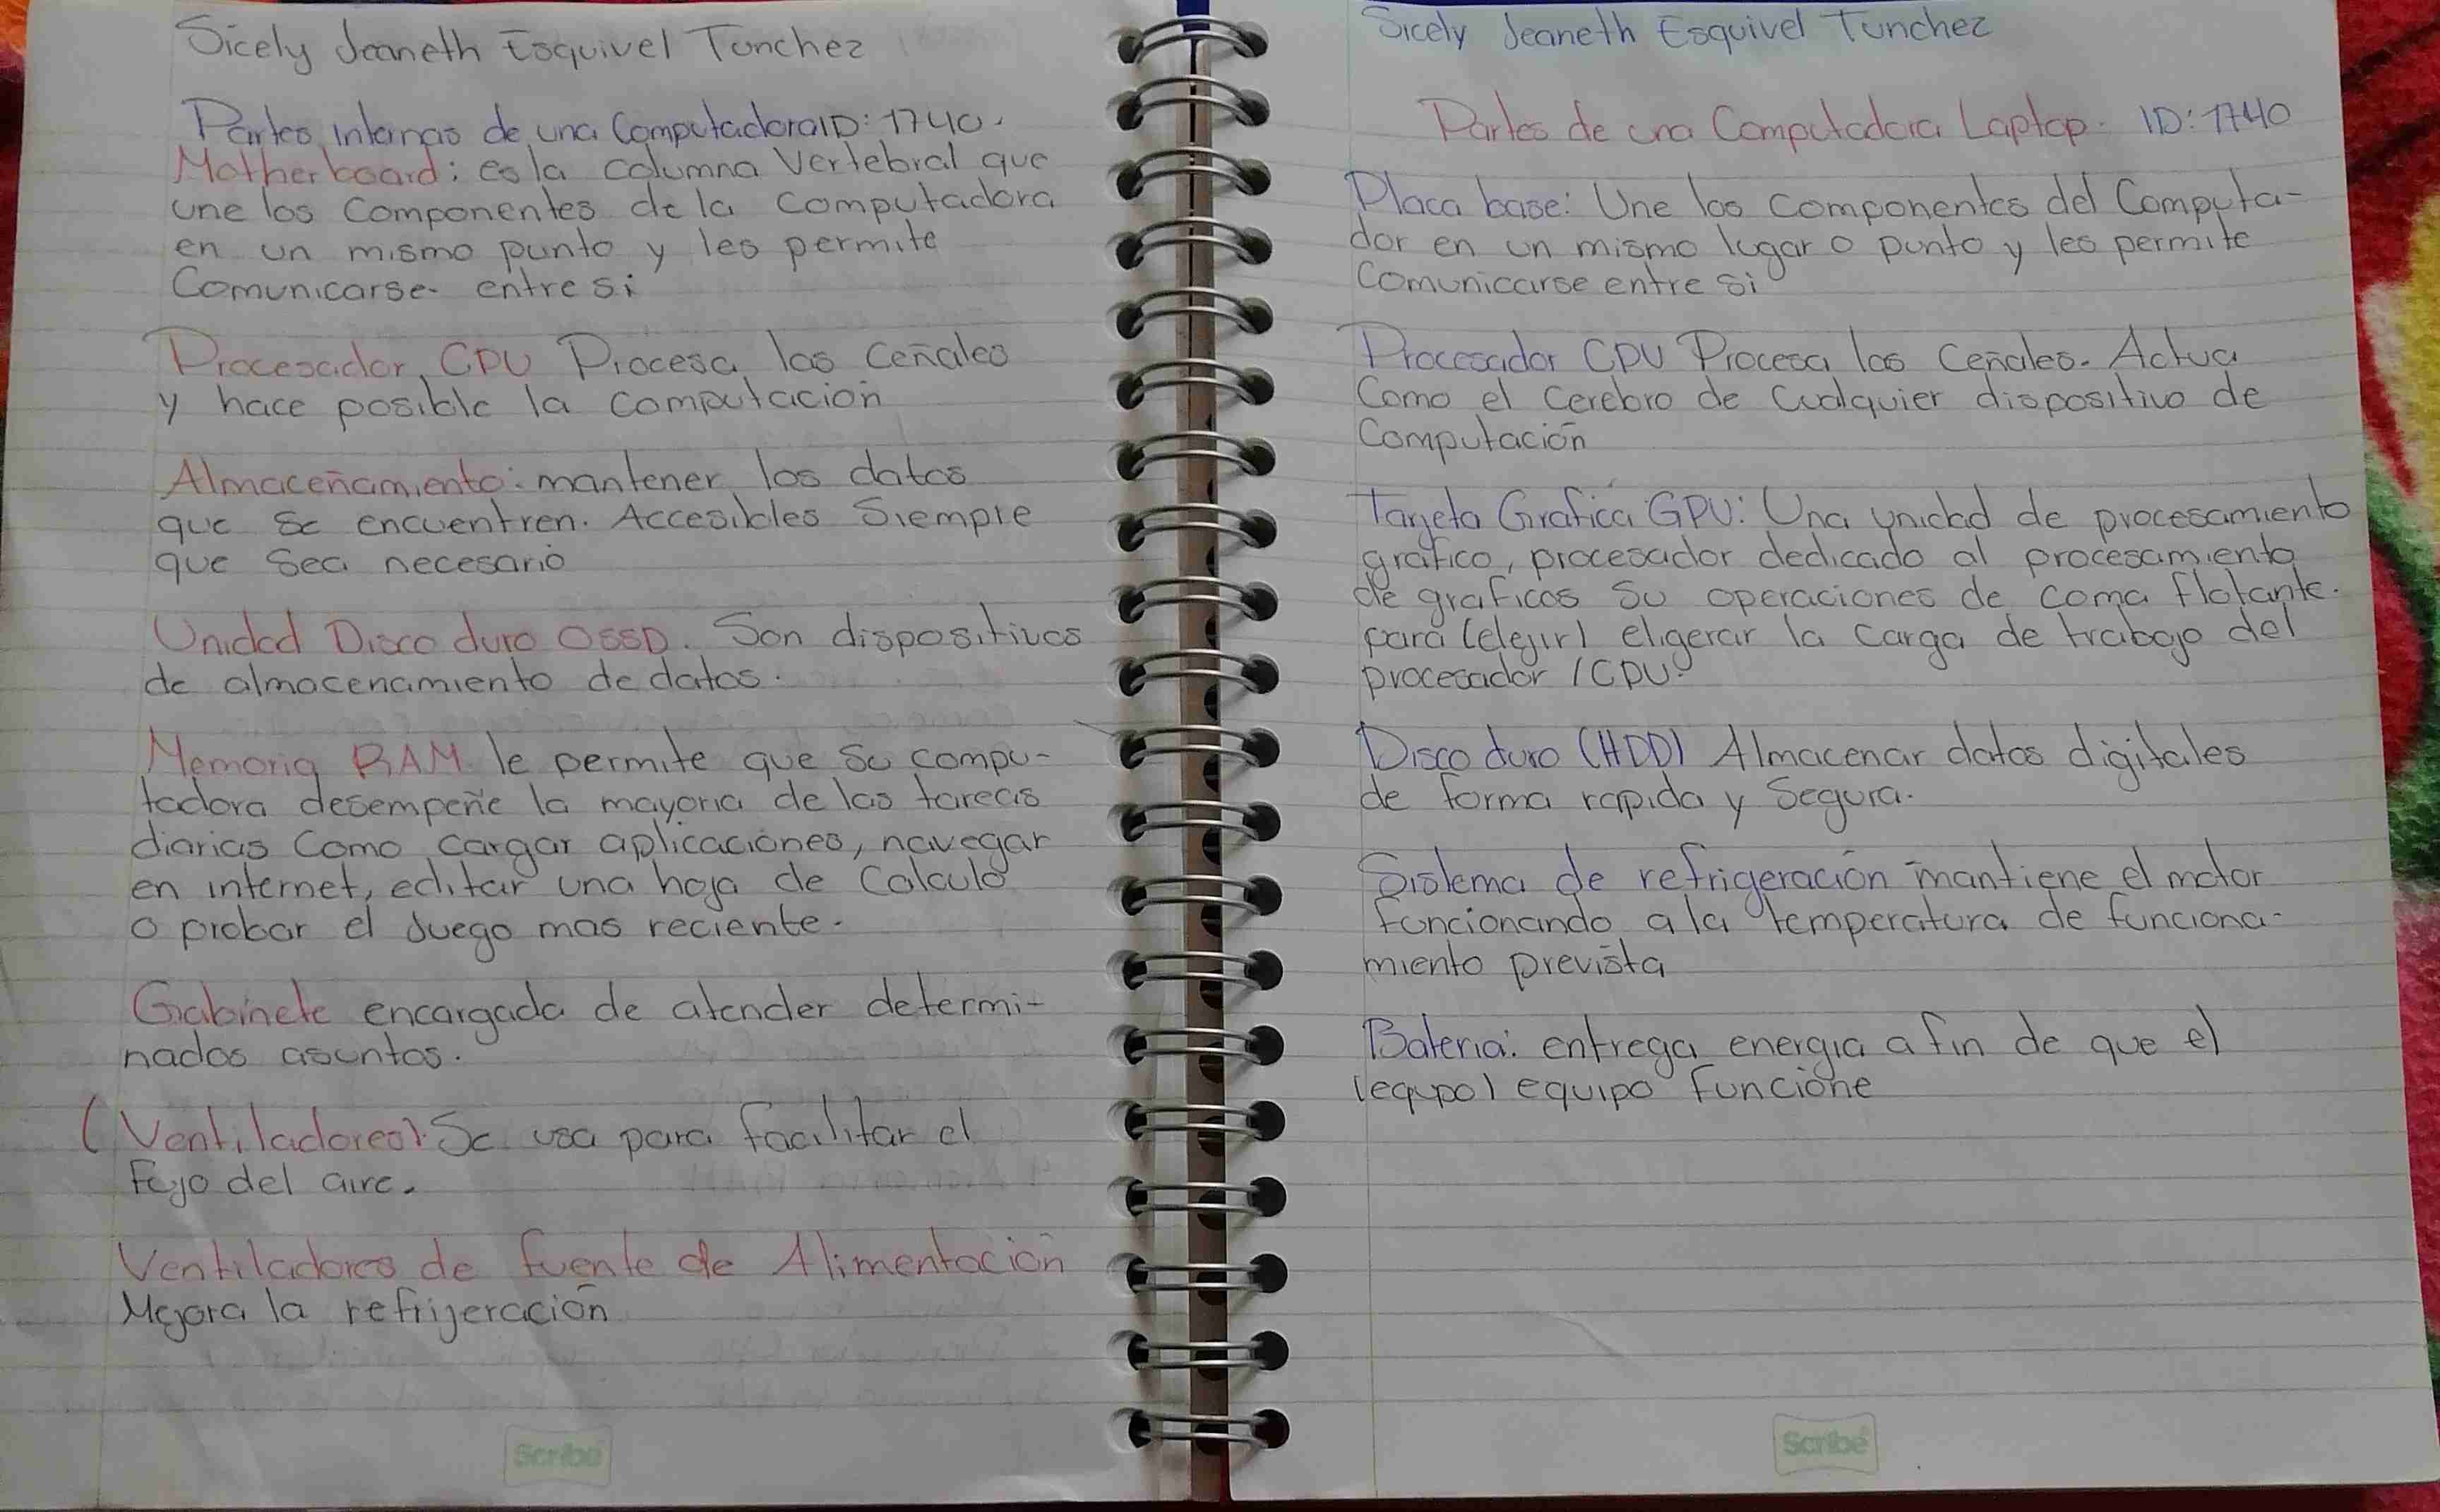 Sicely Jeaneth Esquivel Tunchez
Partes internas de una Computadora ID: 1740.
Motherboard: es la columna Vertebral que
une los Componentes de la Computadora
en un mismo punto y les permite
Comunicarse entre si
Procesador CPU Procesa las Ceñales
y hace posible la Computación
Almaceñamiento: mantener los datos
que se encuentren. Accesibles Siempre
que Sea necesario
Unidad Disco duro OSSD. Son dispositivos
de almacenamiento de datos.
Memoria RAM le permite que Su compu-
tadora desempeñe la mayoria de las tareas
diarias Como cargar aplicaciones, navegar
en internet, editar una hoja de Calculo
o probar el Juego mas reciente.
Gabinete encargada de atender determi-
nados asuntos.
(Ventiladores). Se usa para facilitar el
Fujo del aire.
Ventiladores de fuente de Alimentación
Mejora la refrijeración
Scribe
Sicely Jeaneth Esquivel Tunchez
Partes de una Computadora Laptop. ID: 1740
Placa base: Une los Componentes del Computa-
dor en un mismo lugar o punto y les permite
Comunicarse entre si
Procesador CPU Procesa las Ceñales. Actua
Como el Cerebro de Cualquier dispositivo de
Computación
Tarjeta Grafica GPU: Una unidad de procesamiento
grafico, procesador dedicado al procesamiento
de graficos Su operaciones de coma flotante.
para (elejir) eligerar la Carga de trabajo del
procesador /CPU.
Disco duro (HDD) Almacenar datos digitales
de forma rapida y Segura.
Sistema de refrigeración mantiene el motor
funcionando a la temperatura de funciona-
miento prevista
Bateria: entrega energia a fin de que el
(equpo) equipo funcione
Scribe